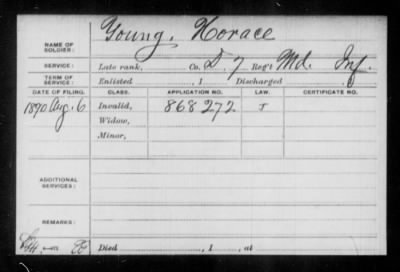 Young, Horace
NAME OF SOLDIER:
SERVICE: Late rank, Co. D, 7 Reg't Md. Inf.
TERM OF SERVICE: Enlisted , 1 Discharged , 1
DATE OF FILING. CLASS. APPLICATION NO. LAW. CERTIFICATE NO.
1890 Aug. 6 Invalid, 868272 J
Widow,
Minor,
ADDITIONAL SERVICES:
REMARKS:
Died , 1 , at